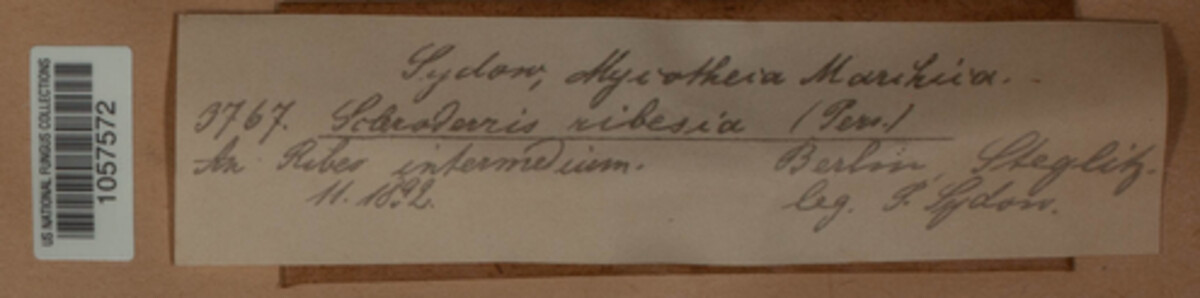 US NATIONAL FUNGUS COLLECTIONS
1057572
Sydow, Mycotheca Marchica.
3767. Scleroderris ribesia (Pers.)
An Ribes intermedium. Berlin, Steglitz.
11. 1892. leg. P. Sydow.